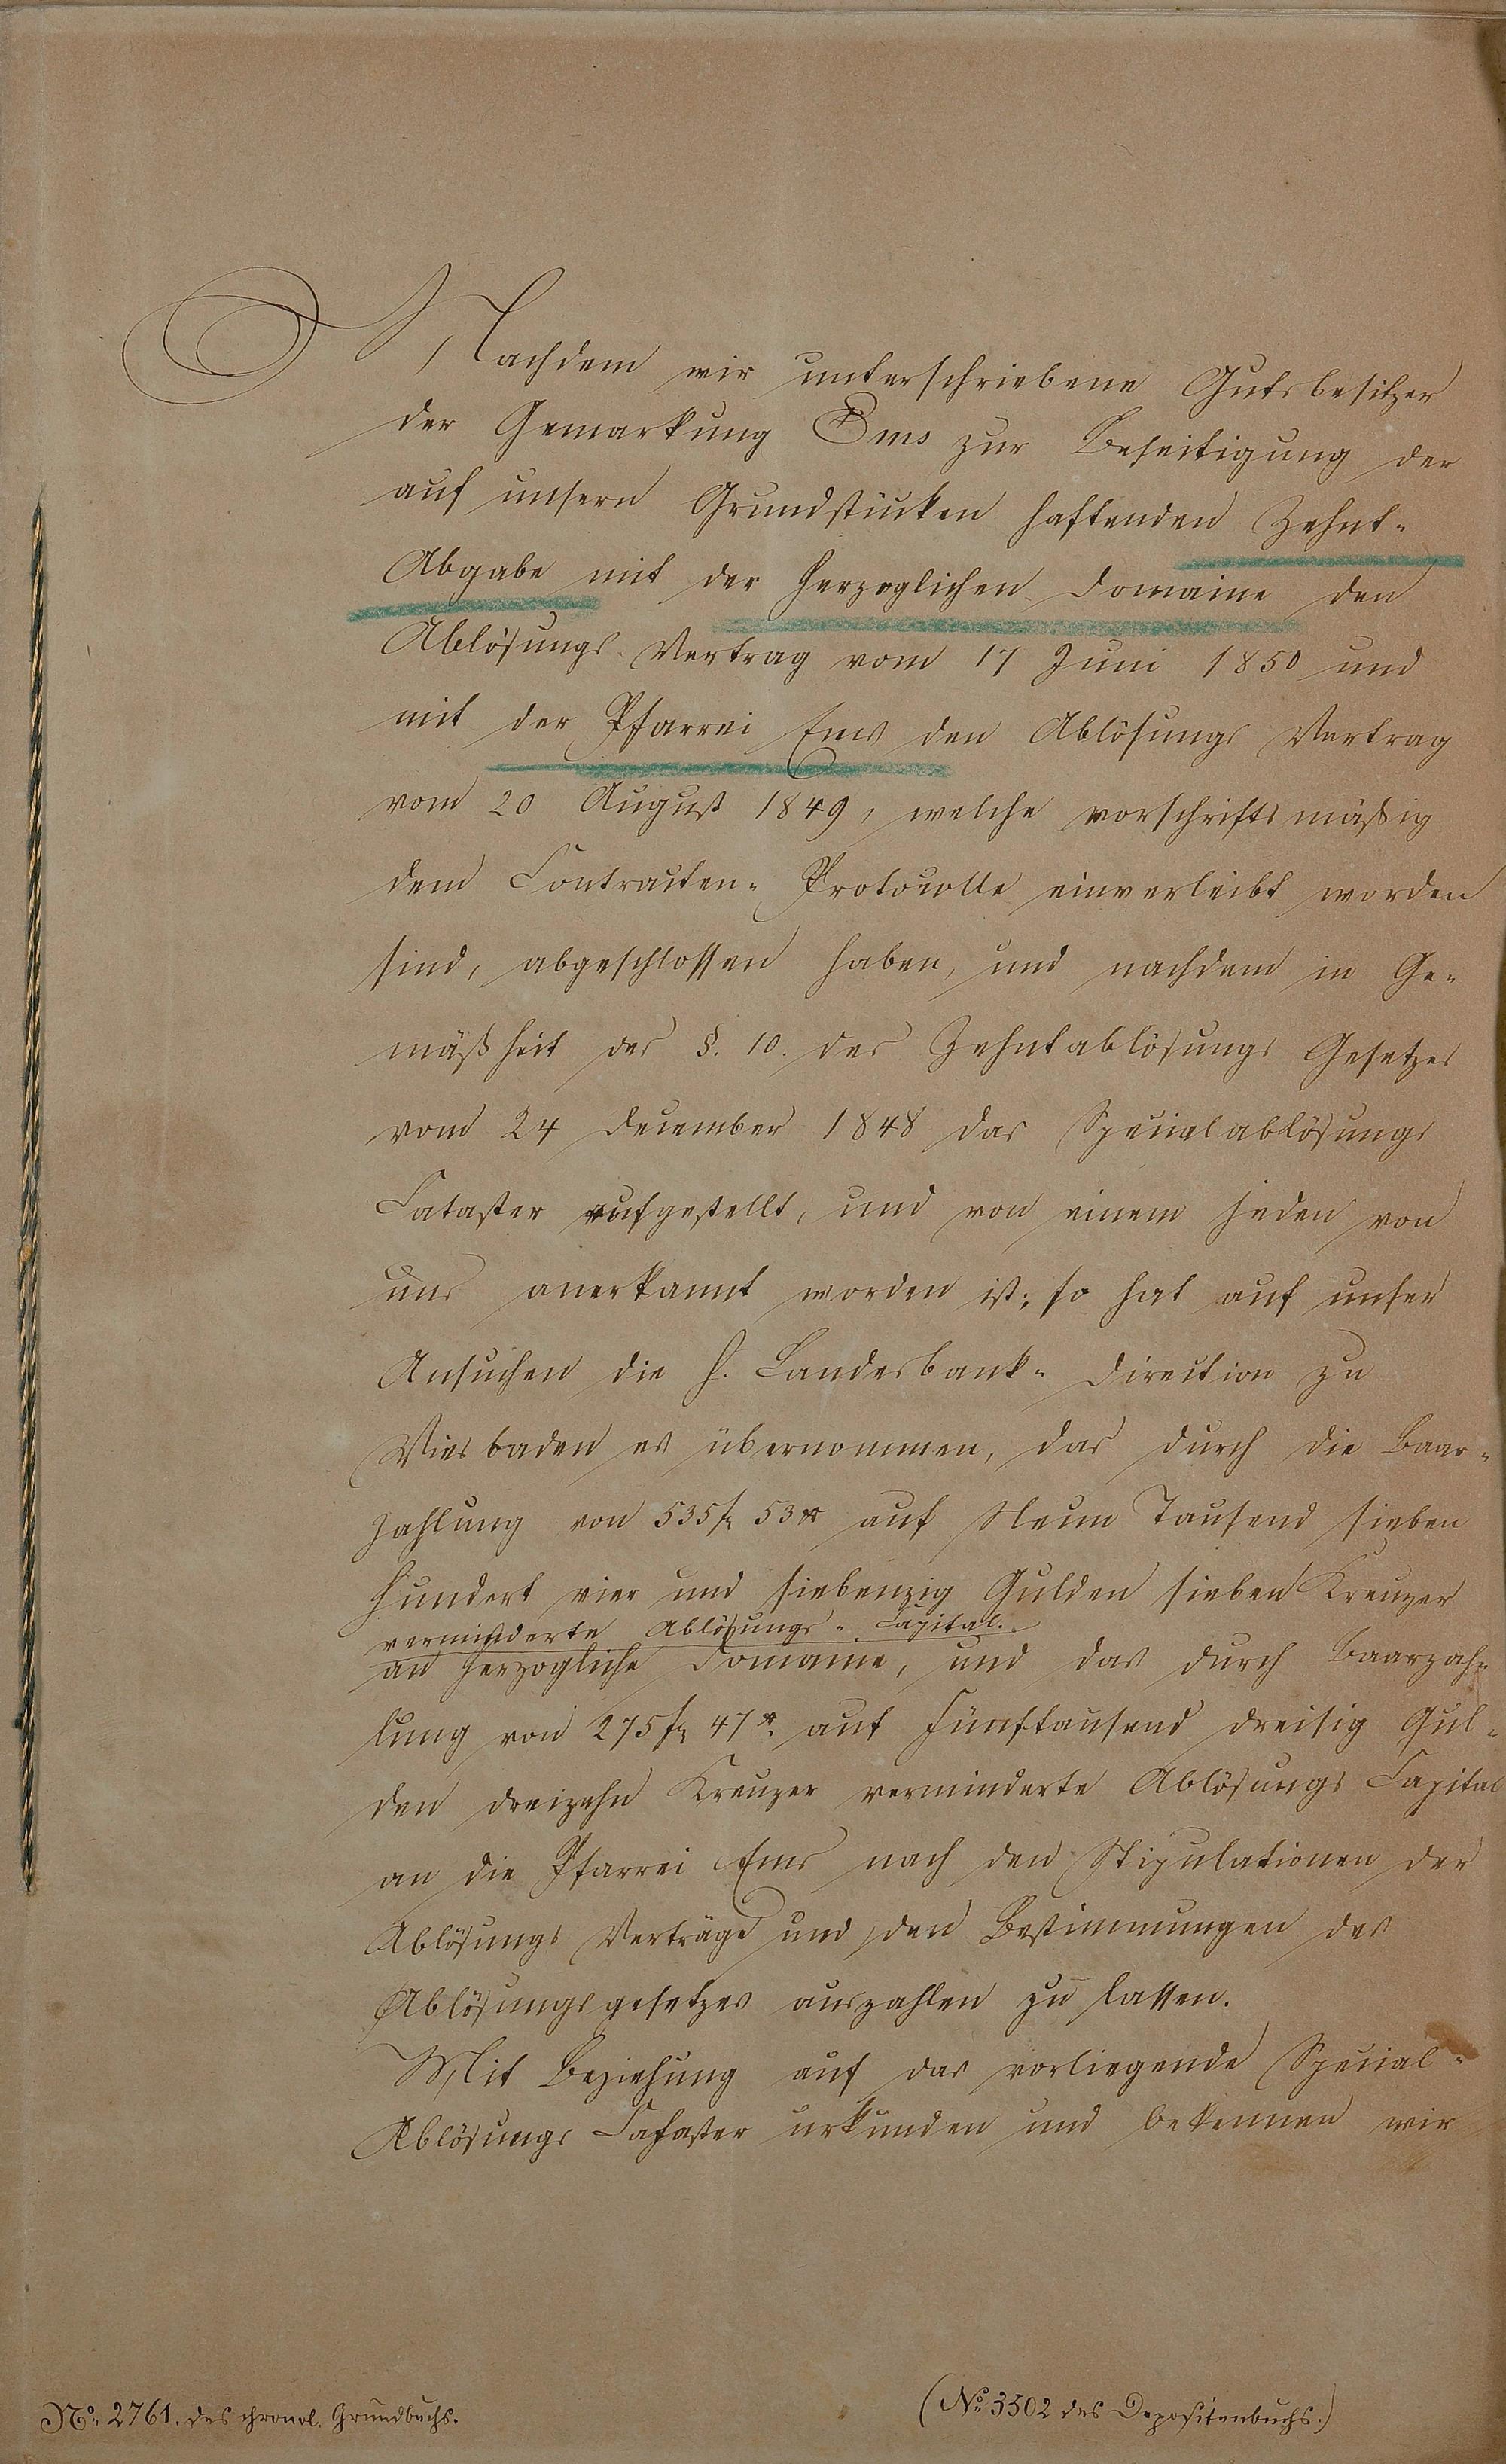 Nachdem wir unterschriebene Gutsbesitzer
der Gemarkung Ems zur Beseitigung der
auf unsern Grundstücken haftenden Zehnt-
Abgabe mit der Herzoglichen Domaine den
Ablösungs Vertrag vom 17 Juni 1850 und
mit der Pfarrei Ems den Ablösungs Vertrag
vom 20 August 1849, welche vorschriftsmäßig
dem Contracten-Protocolle einverleibt worden
sind, abgeschlossen haben, und nachdem in Ge-
mäßheit des §. 10. des Zehntablösungs Gesetzes
vom 24 December 1848 das Specialablösungs
Cataster aufgestellt, und von einem jeden von
uns anerkannt worden ist; so hat auf unser
Ansuchen die H. Landesbank-Direction zu
Wiesbaden es übernommen, das durch die Baar-
zahlung von 535 f 53 x auf Neun Tausend sieben
hundert vier und siebenzig Gulden sieben Kreuzer
verminderte Ablösungs-Capital.
an Herzogliche Domaine, und das durch Baarzah-
lung von 275 f 47 x. auf Fünftausend dreisig Gul-
den dreizehn Kreuzer verminderte Ablösungs Capital
an die Pfarrei Ems nach den Stipulationen der
Ablösungs Verträge und den Bestimmungen des
Ablösungsgesetzes auszahlen zu lassen.
Mit Beziehung auf das vorliegende Special-
Ablösungs Cataster urkunden und bekennen wir
No. 2761. des chronol. Grundbuchs.
(No. 3302 des Depositenbuchs.)